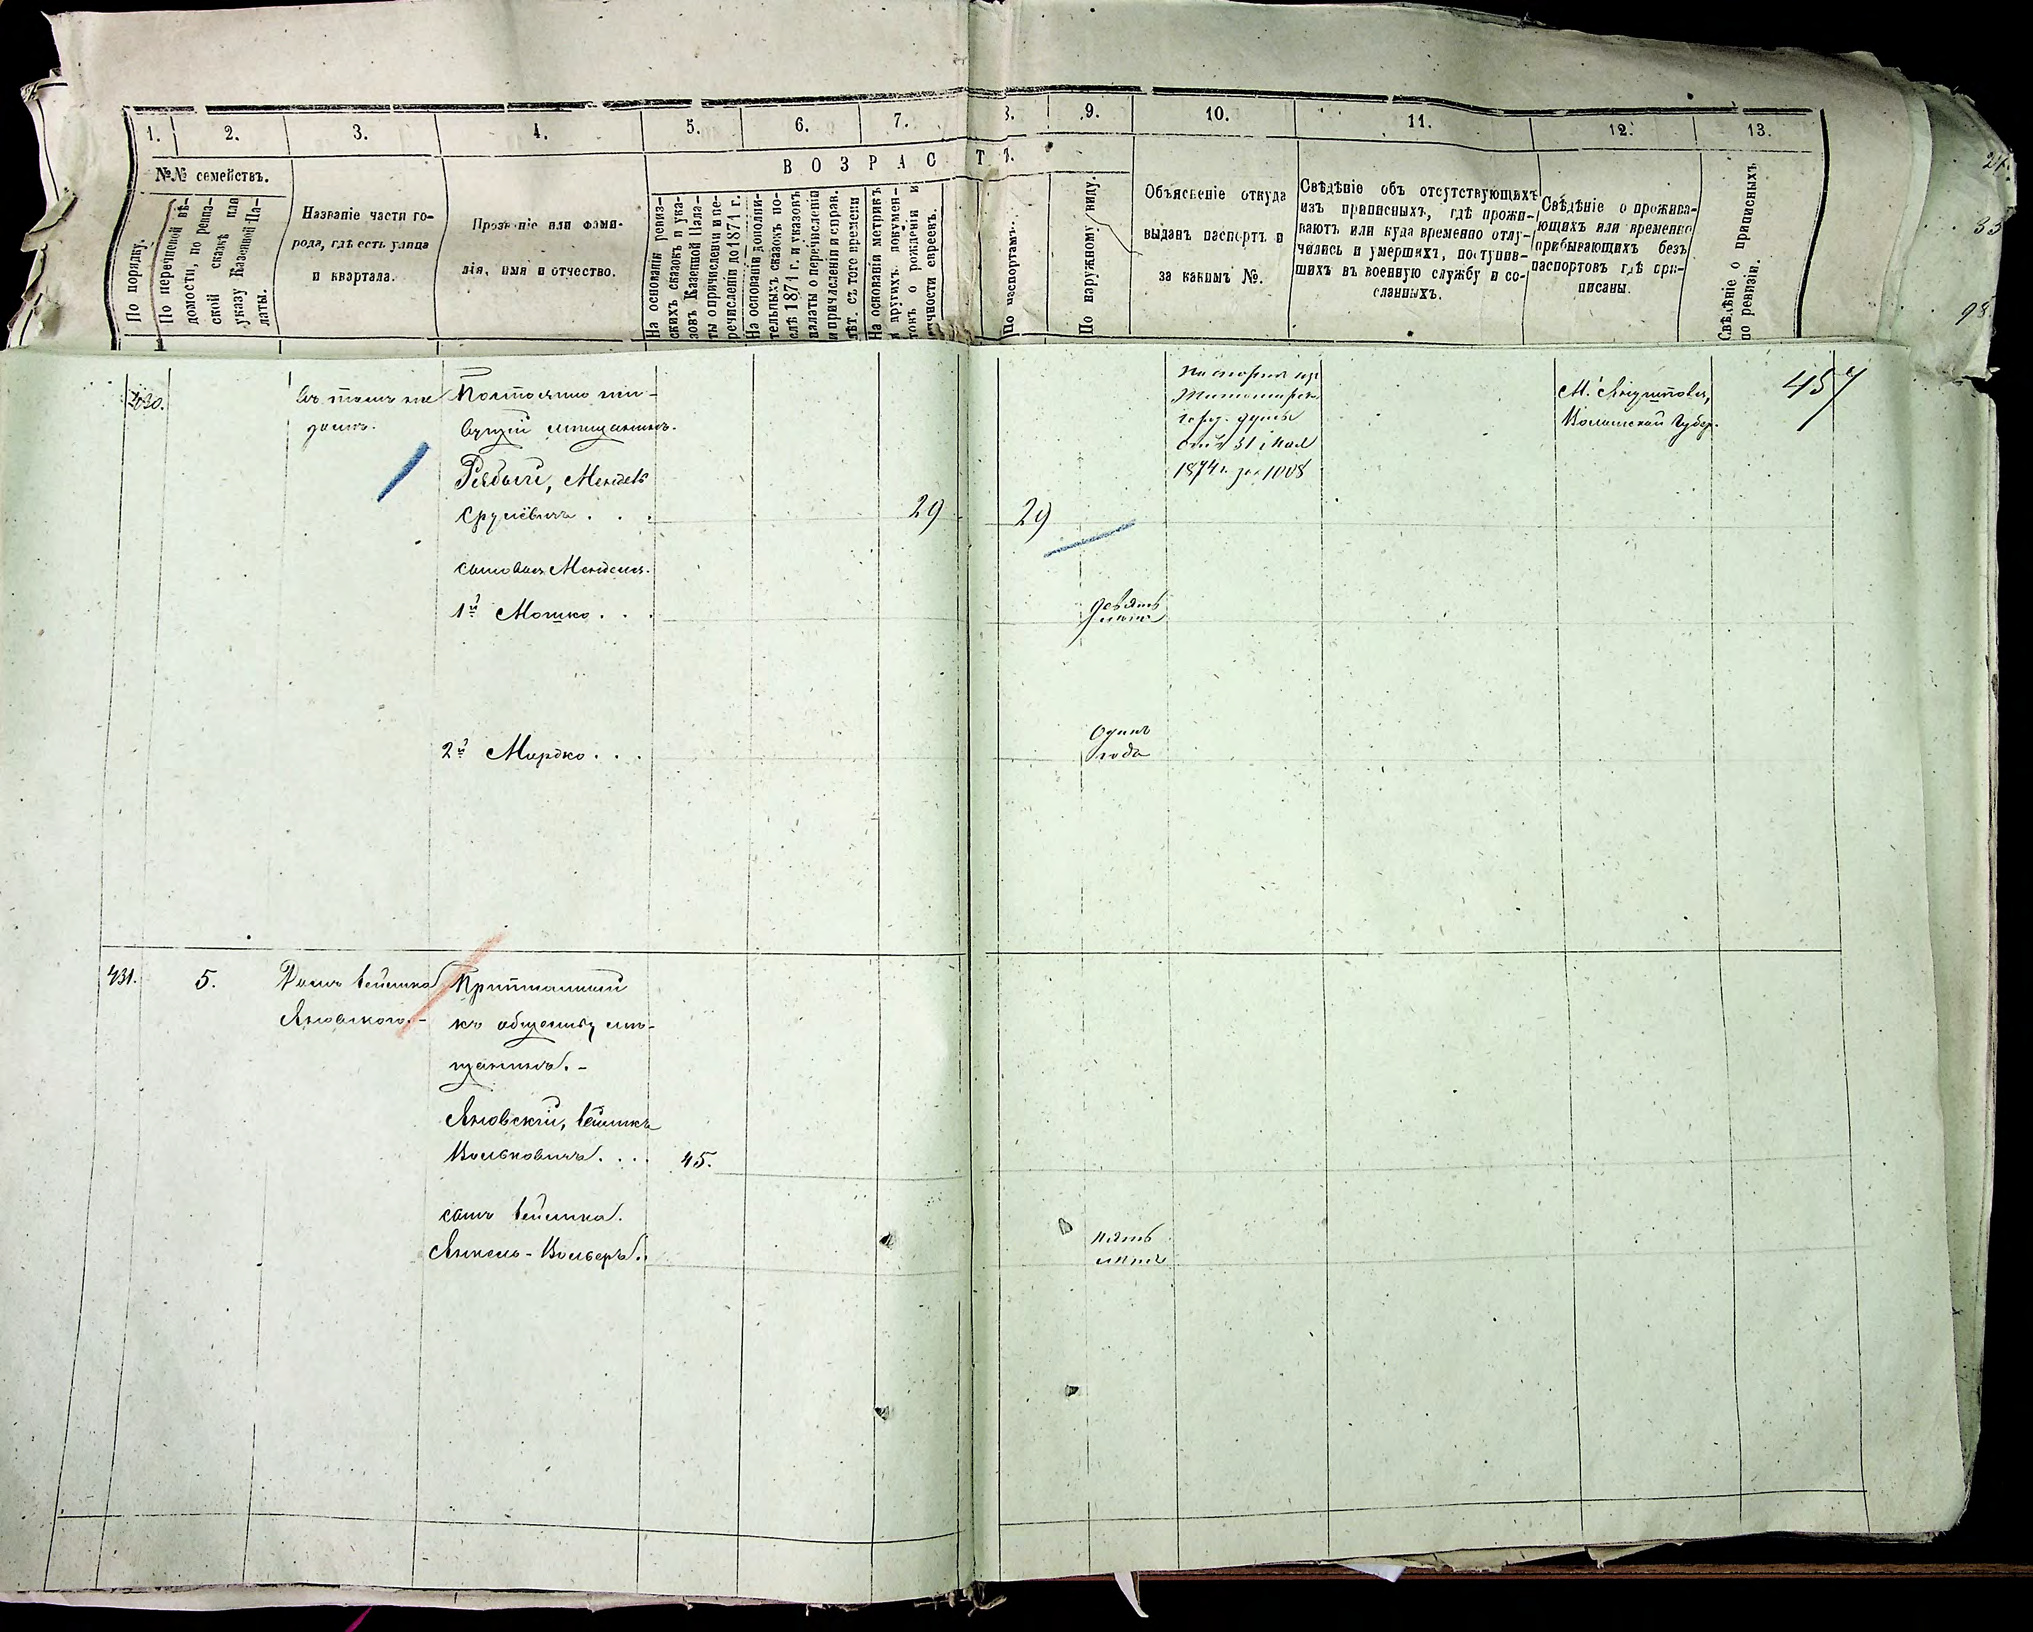 1. 2. 3. 4. 5. 6. 7. 8. 9. 10. 11. 12. 13.
ВОЗРАСТЪ.
№№ семействъ.
По порядку.
По перечневой вѣ-
домости, по ревиз-
ской сказкѣ или
указу Казенной Па-
латы.
Названіе части го-
рода, гдѣ есть улица
и квартала.
Прозваніе или фами-
лія, имя и отчество.
На основаніи ревиз-
скихъ сказокъ и ука-
зовъ Казенной Пала-
ты о причисленіи и пе-
речисленіи до 1871 г.
На основаніи дополни-
тельныхъ сказокъ по-
слѣ 1871 г. и указовъ
палаты о перечисленіи
и причисленіи и справ.
лѣт. съ того времени
На основаніи метрикъ
и другихъ докумен-
товъ о рожденіи и
личности евреевъ.
По паспортамъ.
По наружному виду.
Объясненіе откуда
выданъ паспортъ и
за какимъ №.
Свѣдѣніе объ отсутствующихъ
изъ приписныхъ, гдѣ прожи-
ваютъ или куда временно отлу-
чились и умершихъ, поступив-
шихъ въ военную службу и со-
сланныхъ.
Свѣдѣніе о прожива-
ющихъ или временно
прибывающихъ безъ
паспортовъ гдѣ при-
писаны.
Свѣдѣніе о приписныхъ
по ревизіи.
24.
33
98.
457
430.
Въ томъ же
домѣ.
Постоянно жи-
вущій мѣщанинъ.
Рябый, Мендель
Срулевичъ . . . 29 29
На основ. изъ
Житомирск.
город. думы
отъ 31 Мая
1874 г. за 1008
М. Янушполь,
Волынской Губер.
сыновья Менделя.
1й Мошко . . . девять
лѣтъ
2й Мордко . . . Одинъ
годъ
431. 5. Домъ Вейника
Яновского. -
Приписанный
къ обществу мѣ-
щанинъ. -
Яновскій, Вейникъ
Вольковичъ . . . 45.
сынъ Вейника.
Янкель-Вольверъ. пять
лѣтъ